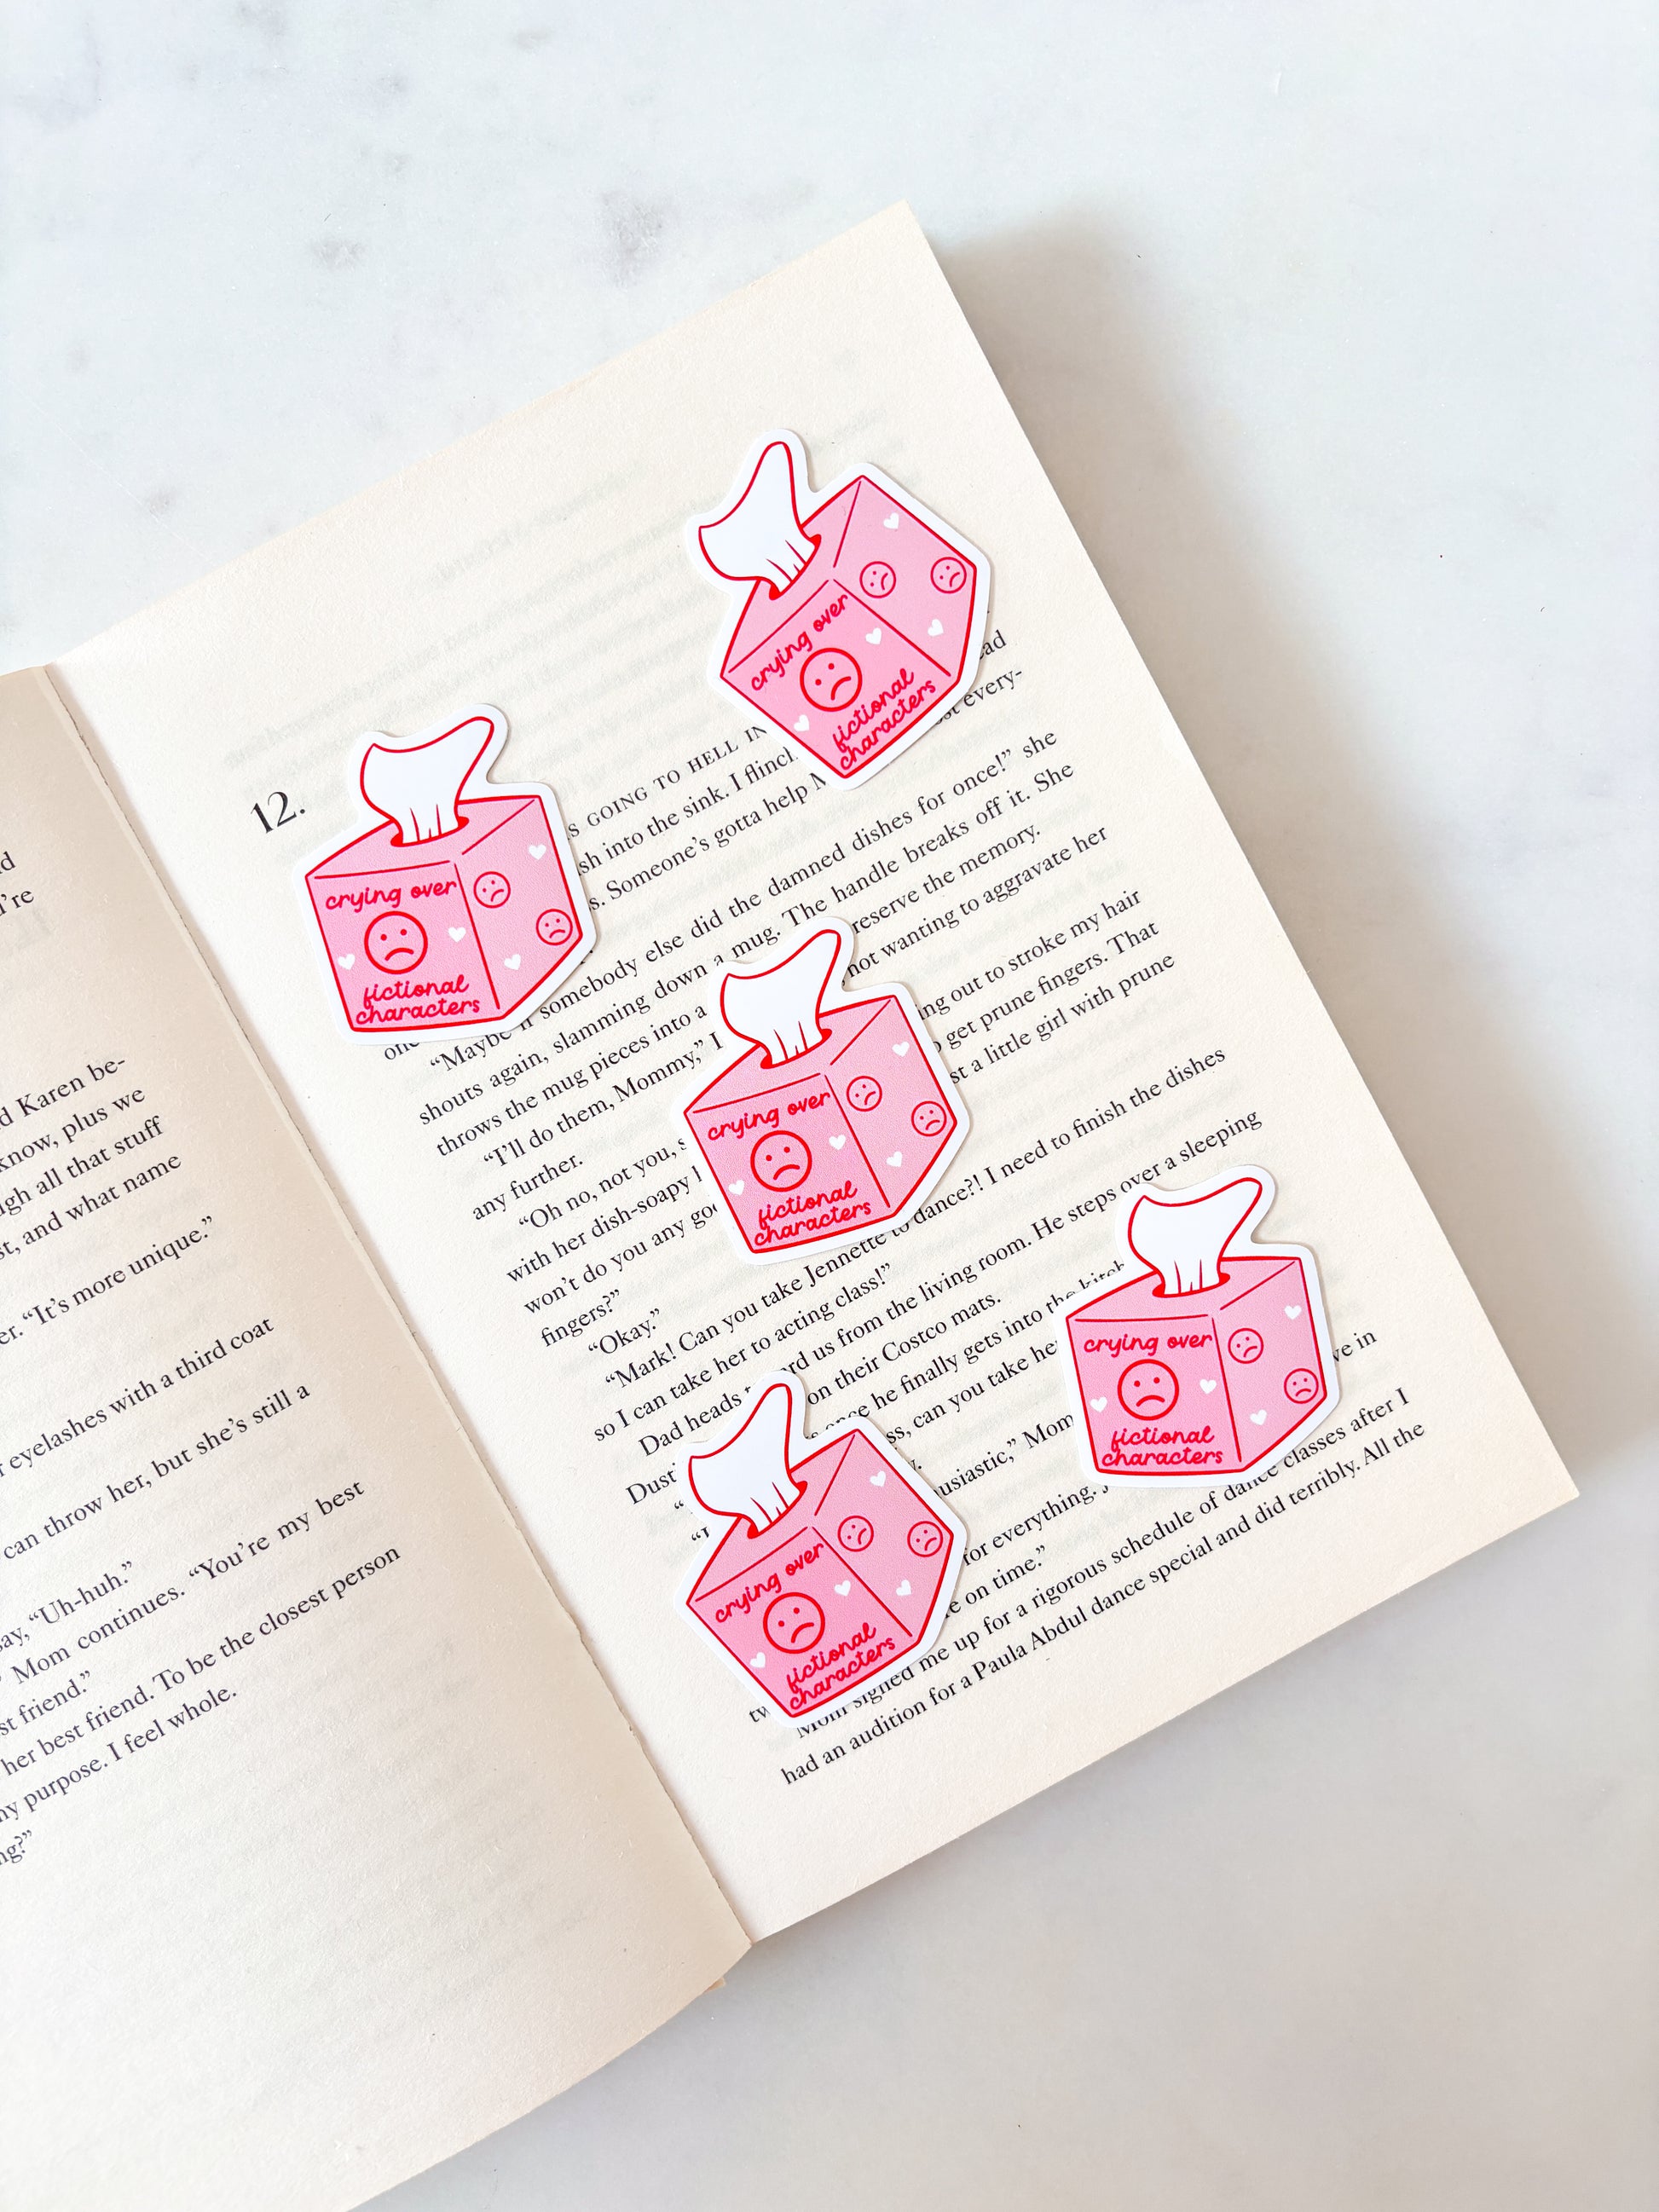 d
I're
d Karen be-
know, plus we
ugh all that stuff
st, and what name
er. “It’s more unique.”
r eyelashes with a third coat
can throw her, but she’s still a
say, “Uh-huh.”
” Mom continues. “You’re my best
st friend.”
her best friend. To be the closest person
my purpose. I feel whole.
ng?”
12.
GOING TO HELL IN
sh into the sink. I flinch
ead
s. Someone’s gotta help M
st every-
one
“Maybe if somebody else did the damned dishes for once!” she
shouts again, slamming down a mug. The handle breaks off it. She
throws the mug pieces into a
reserve the memory.
“I’ll do them, Mommy,” I
not wanting to aggravate her
any further.
“Oh no, not you, s
ing out to stroke my hair
with her dish-soapy
o get prune fingers. That
won’t do you any goo
st a little girl with prune
fingers?”
“Okay.”
“Mark! Can you take Jennette to dance?! I need to finish the dishes
so I can take her to acting class!”
Dad heads
rd us from the living room. He steps over a sleeping
Dust
on their Costco mats.
once he finally gets into the kitch
ss, can you take he
usiastic,” Mom
ve in
for everything.
e on time.”
tw
Mom signed me up for a rigorous schedule of dance classes after I
had an audition for a Paula Abdul dance special and did terribly. All the
crying over
fictional
characters
crying over
fictional
characters
crying over
fictional
characters
crying over
fictional
characters
crying over
fictional
characters